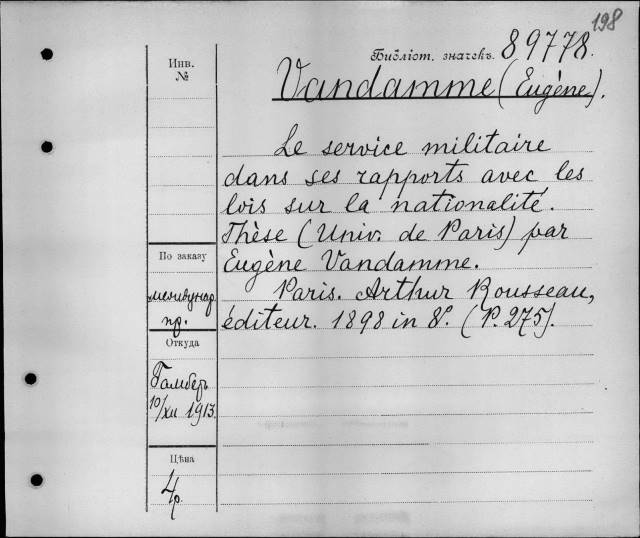 198
Библіот. значекъ 89778.
Vandamme (Eugène).
Инв.
№
Le service militaire
dans ses rapports avec les
lois sur la nationalité.
Thèse (Univ. de Paris) par
Eugène Vandamme.
Paris. Arthur Rousseau,
éditeur. 1898 in 8º. (P. 275).
По заказу
междунар.
пр.
Откуда
Гамберъ
10/XII 1913.
Цѣна
4 р.